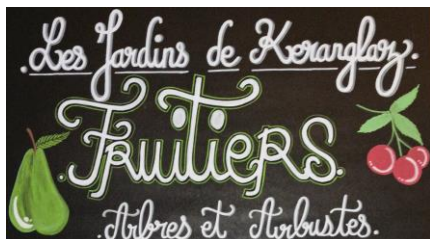 .Les Jardins de Keranglaz.
.FRuitieRS.
.Arbres et Arbustes.